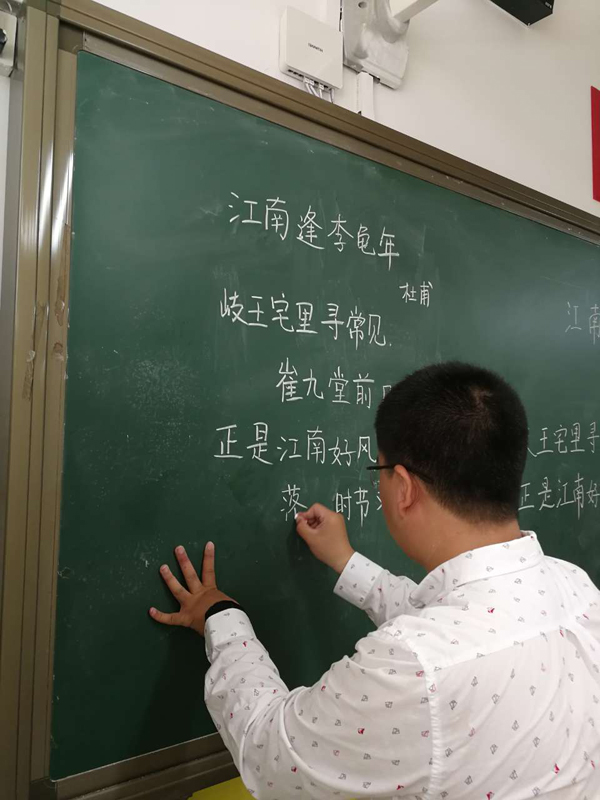 江南逢李龟年
杜甫
岐王宅里寻常见.
崔九堂前
正是江南好风
落 时节
江南
王宅里寻
正是江南好